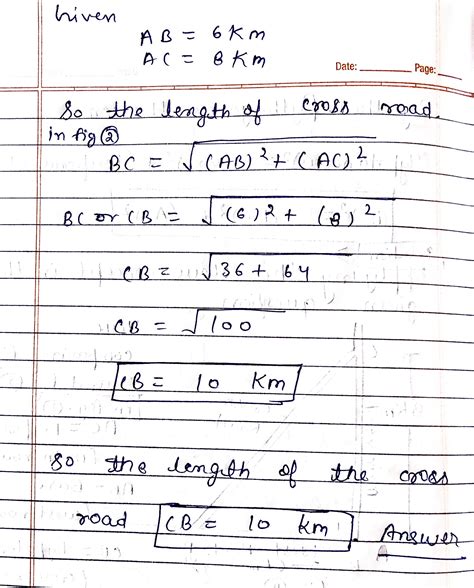 Given
AB = 6 Km
AC = 8 Km
Date: Page:
So the length of cross road
in fig ②
BC = √(AB)² + (AC)²
BC or CB = √(6)² + (8)²
CB = √36 + 64
CB = √100
CB = 10 Km
So the length of the cross
road CB = 10 km. Answer